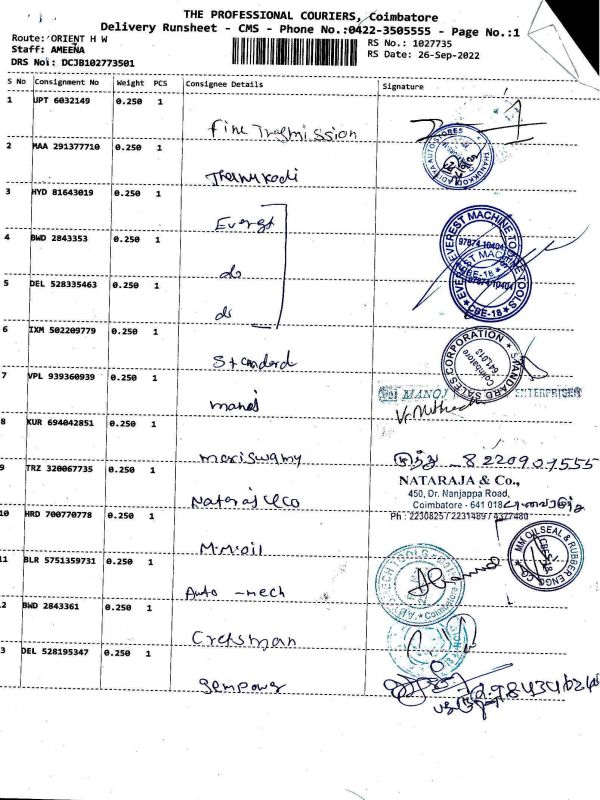 THE PROFESSIONAL COURIERS, Coimbatore
Delivery Runsheet - CMS - Phone No.:0422-3505555 - Page No.:1
Route: ORIENT H W
RS No.: 1027735
Staff: AMEENA
RS Date: 26-Sep-2022
DRS No: DCJB102773501
S No Consignment No Weight PCS Consignee Details Signature
1 UPT 6032149 0.250 1
Fine Trasmission
2 MAA 291377710 0.250 1
Thanukodi
3 HYD 81643019 0.250 1
Everest
EVEREST MACHINE TOOLS
97874 10404
CBE-18
4 BWD 2843353 0.250 1
do
5 DEL 528335463 0.250 1
do
6 IXM 502209779 0.250 1
Standard
STANDARD SALES CORPORATION
Coimbatore
641 018
7 VPL 939360939 0.250 1
manoj
MANOJ ENTERPRISES
8 KUR 694042851 0.250 1
mariswamy
8220901555
9 TRZ 320067735 0.250 1
Nataraj & co
NATARAJA & Co.,
450, Dr. Nanjappa Road,
Coimbatore - 641 018
Ph : 2230825 / 2231489 / 4377480
10 HRD 700770778 0.250 1
M.M.oil
MM OILSEAL & RUBBER ENGG CO
11 BLR 5751359731 0.250 1
Auto - mech
2 BWD 2843361 0.250 1
Crefsman
3 DEL 528195347 0.250 1
Sempower